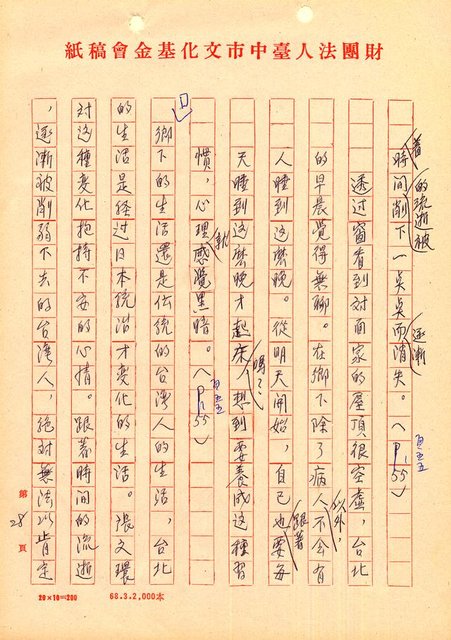 財團法人臺中市文化基金會稿紙
著時間的流逝被削下一點點而逐漸消失。(P.155)
頁一五五
透過窗看到對面家的屋頂很空虛，台北
的早晨覺得無聊。在鄉下除了病人以外，不會有
人睡到這麼晚。從明天開始，自己也要跟著每
天睡到這麼晚才起床嗎？想到要養成這種習
慣，心理就感覺黑暗。(P.155)
頁一五五
鄉下的生活還是傳統的台灣人的生活，台北
的生活是经过日本統治才變化的生活。張文環
对这種变化抱持不安的心情。跟著時間的流逝
，逐漸被削弱下去的台湾人，絕对無法以肯定
第28頁
20×10=200
68.3.2,000本